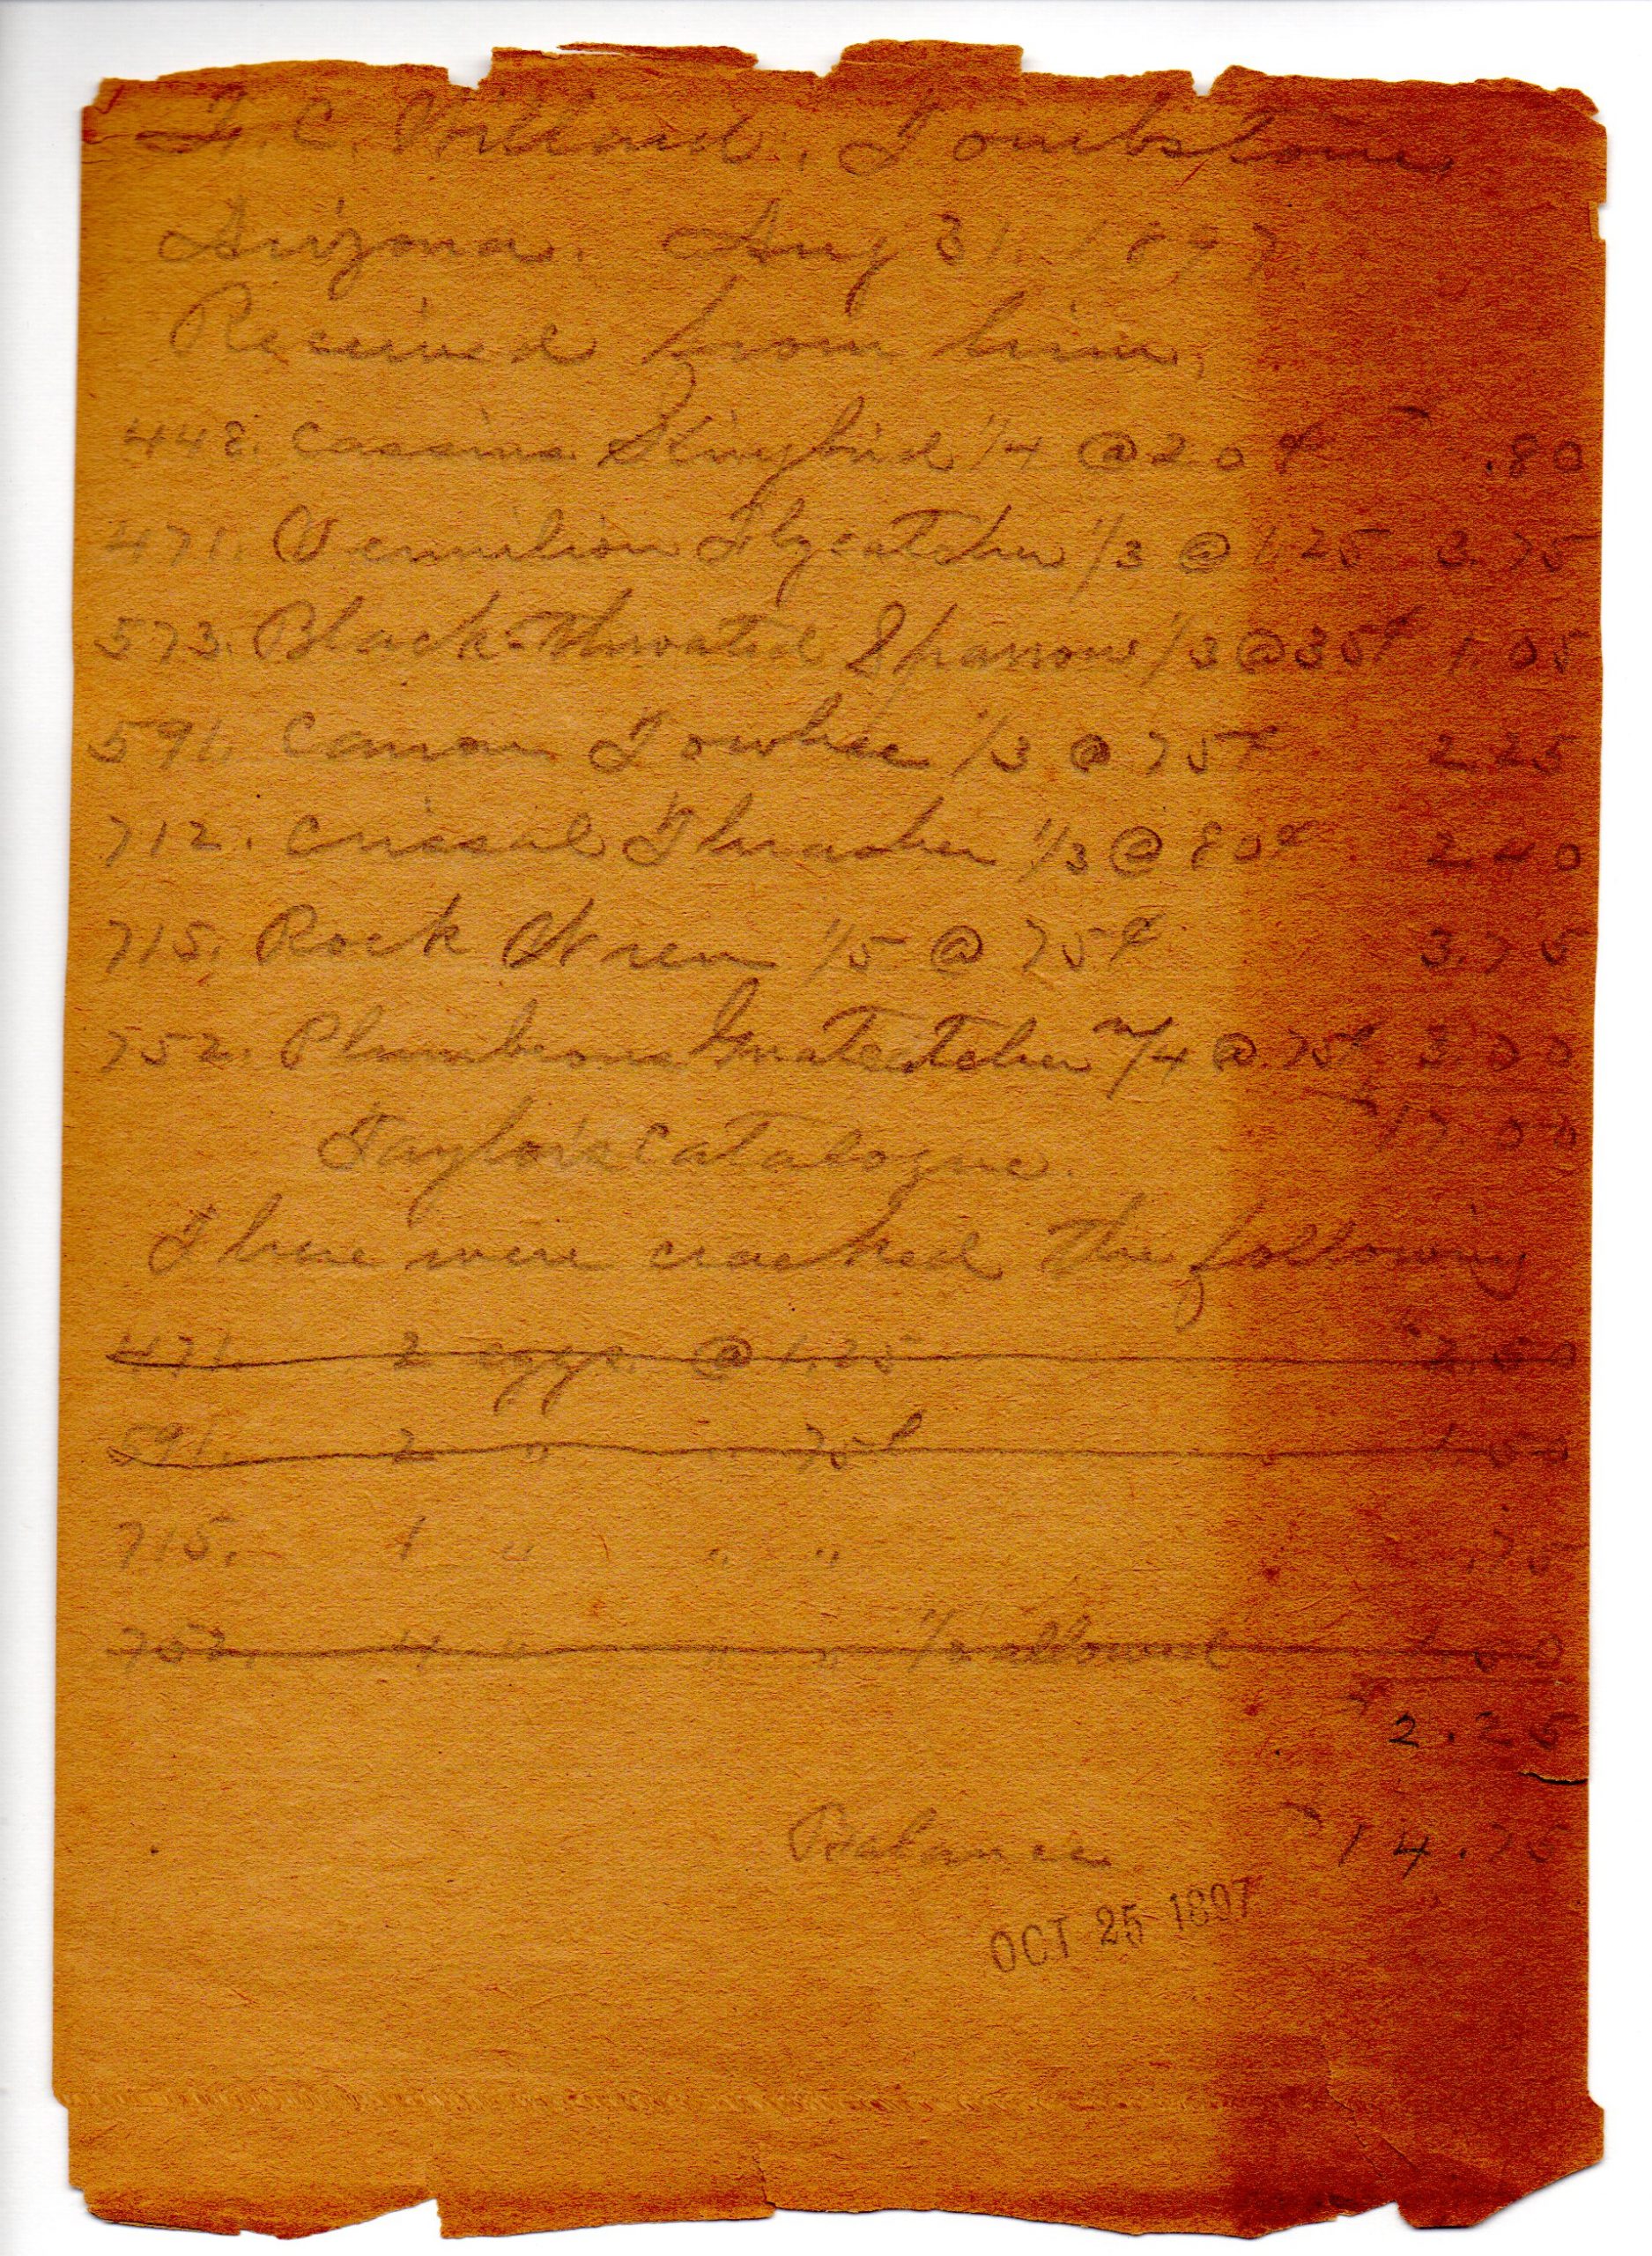 F. C. Willard. Tombstone,
Arizona. Aug 31. 1897.
Received from him,
448. Cassins Kingbird 1/4 @ 20¢ .80
471. Vermilion Flycatcher 1/3 @ 1.25 3.75
573. Black-throated Sparrow 1/3 @ 35¢ 1.05
591. Canon Towhee 1/3 @ 75¢ 2.25
712. Crissal Thrasher 1/3 @ 80¢ 2.40
715. Rock Wren 1/5 @ 75¢ 3.75
752. Plumbeous Gnatcatcher n/4 @ 75¢ 3.00
17.00
Taylor's Catalogue.
There were cracked the following
471. 2 eggs. @ 1.25 2.50
591. 2 " " 75¢ 1.50
715. 1 " " " .75
752. 4 " " " 1/2 allowed 1.50
2.25
Balance 14.75
OCT 25 1897